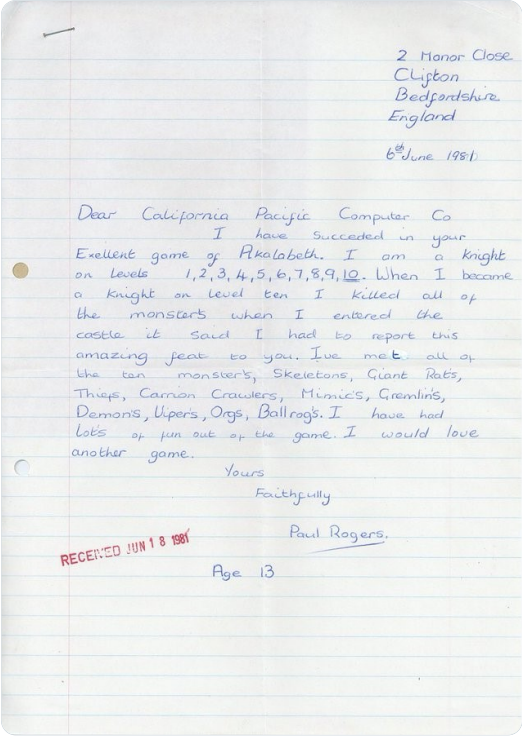 2 Manor Close
Clifton
Bedfordshire
England
6th June 1981
Dear California Pacific Computer Co
I have Succeded in your
Exellent game of Akalabeth. I am a knight
on levels 1,2,3,4,5,6,7,8,9,10. When I became
a Knight on level ten I killed all of
the monster's when I entered the
castle it said I had to report this
amazing feat to you. I've met all of
the ten monster's, Skeletons, Giant Rat's,
Thiefs, Carrion Crawlers, Mimic's, Gremlin's,
Demon's, Viper's, Orgs, Ballrog's. I have had
Lot's of fun out of the game. I would love
another game.
Yours
Faithfully
Paul Rogers.
RECEIVED JUN 18 1981
Age 13